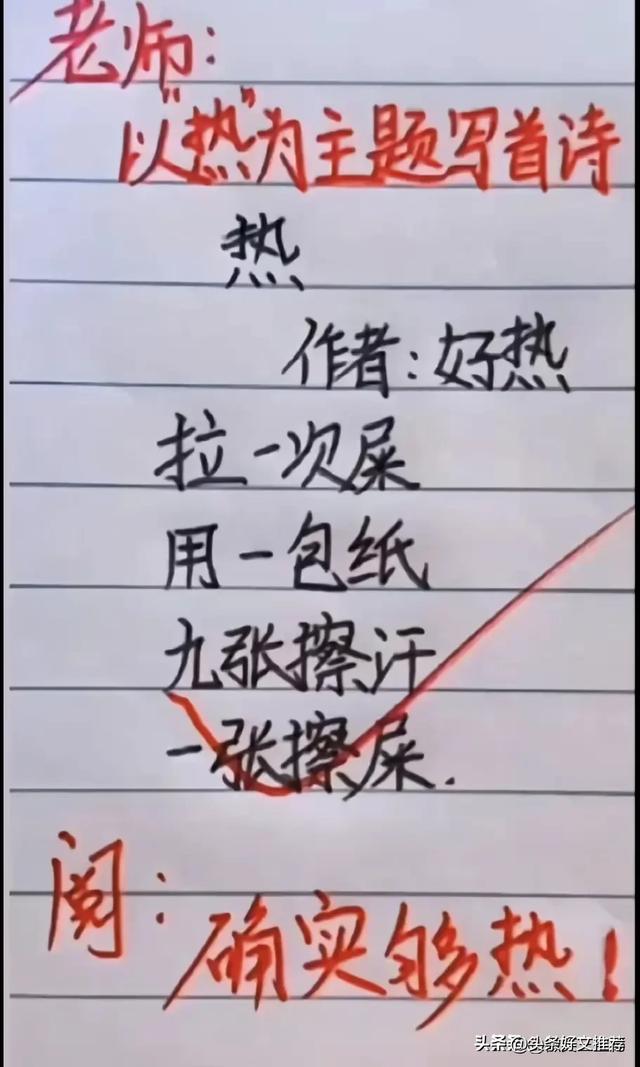 老师：
以“热”为主题写首诗
热
作者：好热
拉一次屎
用一包纸
九张擦汗
一张擦屎.
阅：确实够热！
头条@头条好文推荐